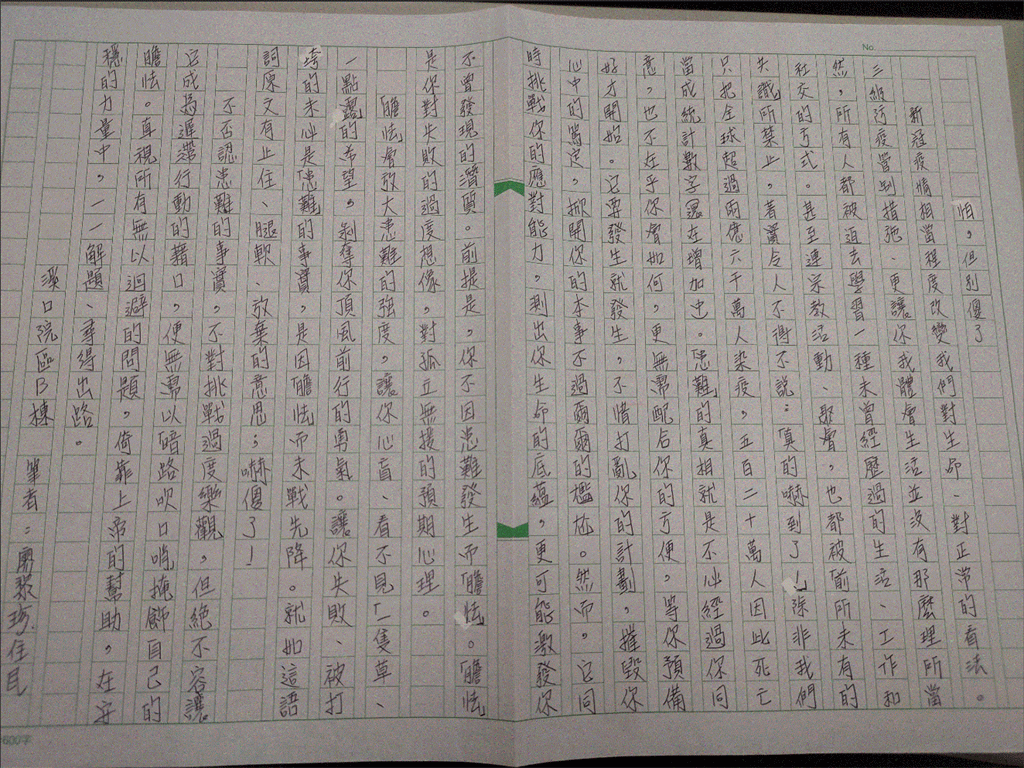 No.
怕，但別傻了
新冠疫情相當程度改變我們對生命、對正常的看法。
三級防疫管制措施、更讓你我體會生活並沒有那麼理所當
然，所有人都被迫去學習一種未曾經歷過的生活、工作和
社交的方式。甚至連宗教活動、聚會，也都被「前所未有的
失識所禁止。著實令人不得不說：「真的嚇到了」除非我們
只把全球超過兩億六千萬人染疫，五百二十萬人因此死亡
當成統計數字還在增加中。「患難」的真相就是不必經過你同
意，也不在乎你曾如何，更無需配合你的方便，等你預備
好才開始。它要發生就發生，不惜打亂你的計劃，摧毀你
心中的篤定，掀開你的本事不過爾爾的尷尬。然而，它同
時挑戰你的應對能力，刺出你生命的底蘊，更可能激發你
不曾發現的潛質。前提是，你不因患難發生而「膽怯。「膽怯
是你對失敗的過度想像，對孤立無援的預期心理。
「膽怯會放大患難的強度，讓你心盲、看不見「一隻草、
一點露」的希望。剝奪你頂風前行的勇氣。讓你失敗、被打
垮的未必是「患難」的事實，是因「膽怯而未戰先降。就如這語
詞原文有止住、腿軟、放棄的意思；嚇傻了！
不否認患難的事實，不對挑戰過度樂觀，但絕不容讓
它成為遲滯行動的藉口，便無需以「暗路吹口哨掩飾自己的
膽怯。直視所有無以迴避的問題，倚靠上帝的幫助，在安
穩的力量中，一一解題、尋得出路。
溪口院區B棟 筆者：廖黎琇住民
600字